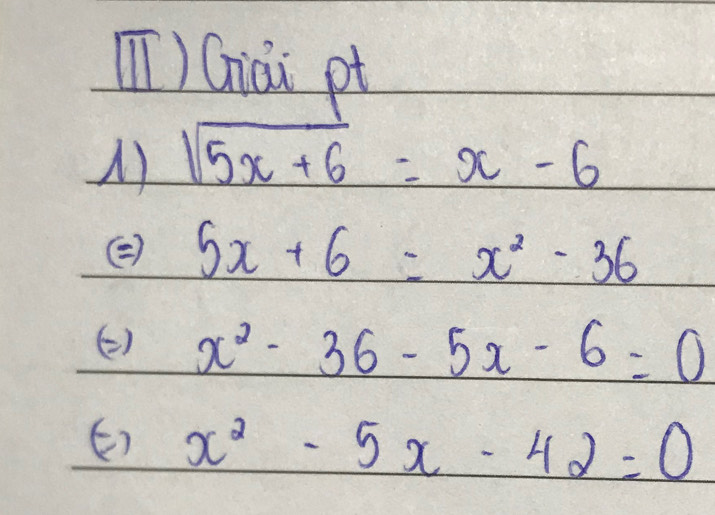 III) Giải pt
1) √(5x + 6) = x - 6
(=) 5x + 6 = x² - 36
(=) x² - 36 - 5x - 6 = 0
(=) x² - 5x - 42 = 0